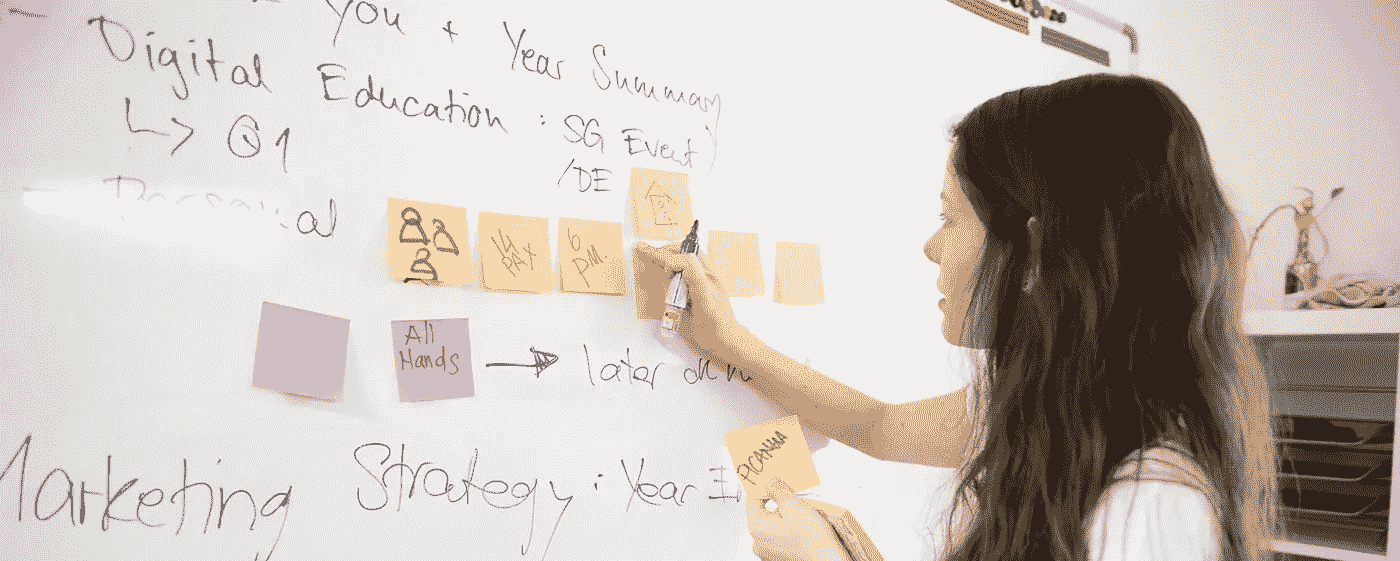 You + Year Summary
Digital Education : SG Event)
/DE
↳ Q1
14 PAX
6 PM.
All
Hands
→ later on
Marketing Strategy : Year
PICANHA